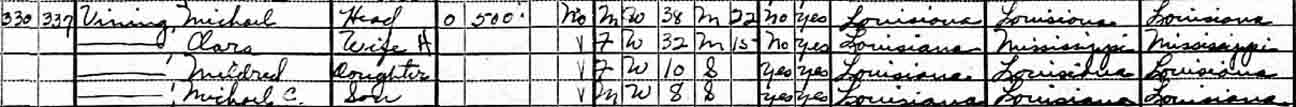 330 337 Vining, Michael Head O 500 No M W 38 M 22 No Yes Louisiana Louisiana Louisiana
——— , Clara Wife H V F W 32 M 15 No Yes Louisiana Mississippi Mississippi
——— , Mildred Daughter V F W 10 S Yes Yes Louisiana Louisiana Louisiana
——— , Michael C. Son V M W 8 S Yes Yes Louisiana Louisiana Louisiana